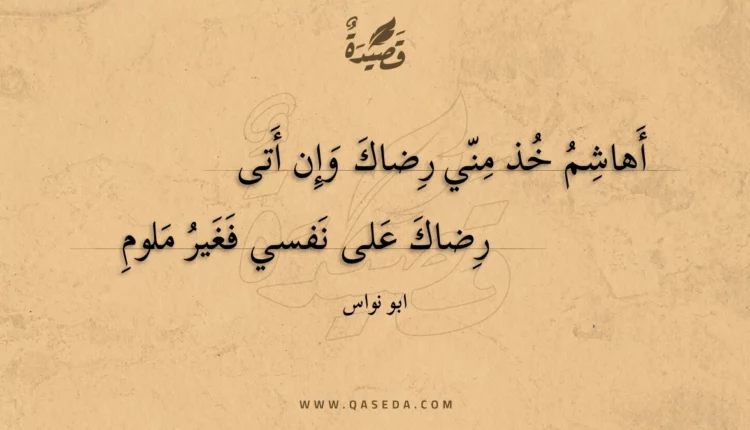 قَصِيدَةٌ
أَهاشِمُ خُذ مِنّي رِضاكَ وَإِن أَتى
رِضاكَ عَلى نَفسي فَغَيرُ مَلومِ
ابو نواس
WWW.QASEDA.COM